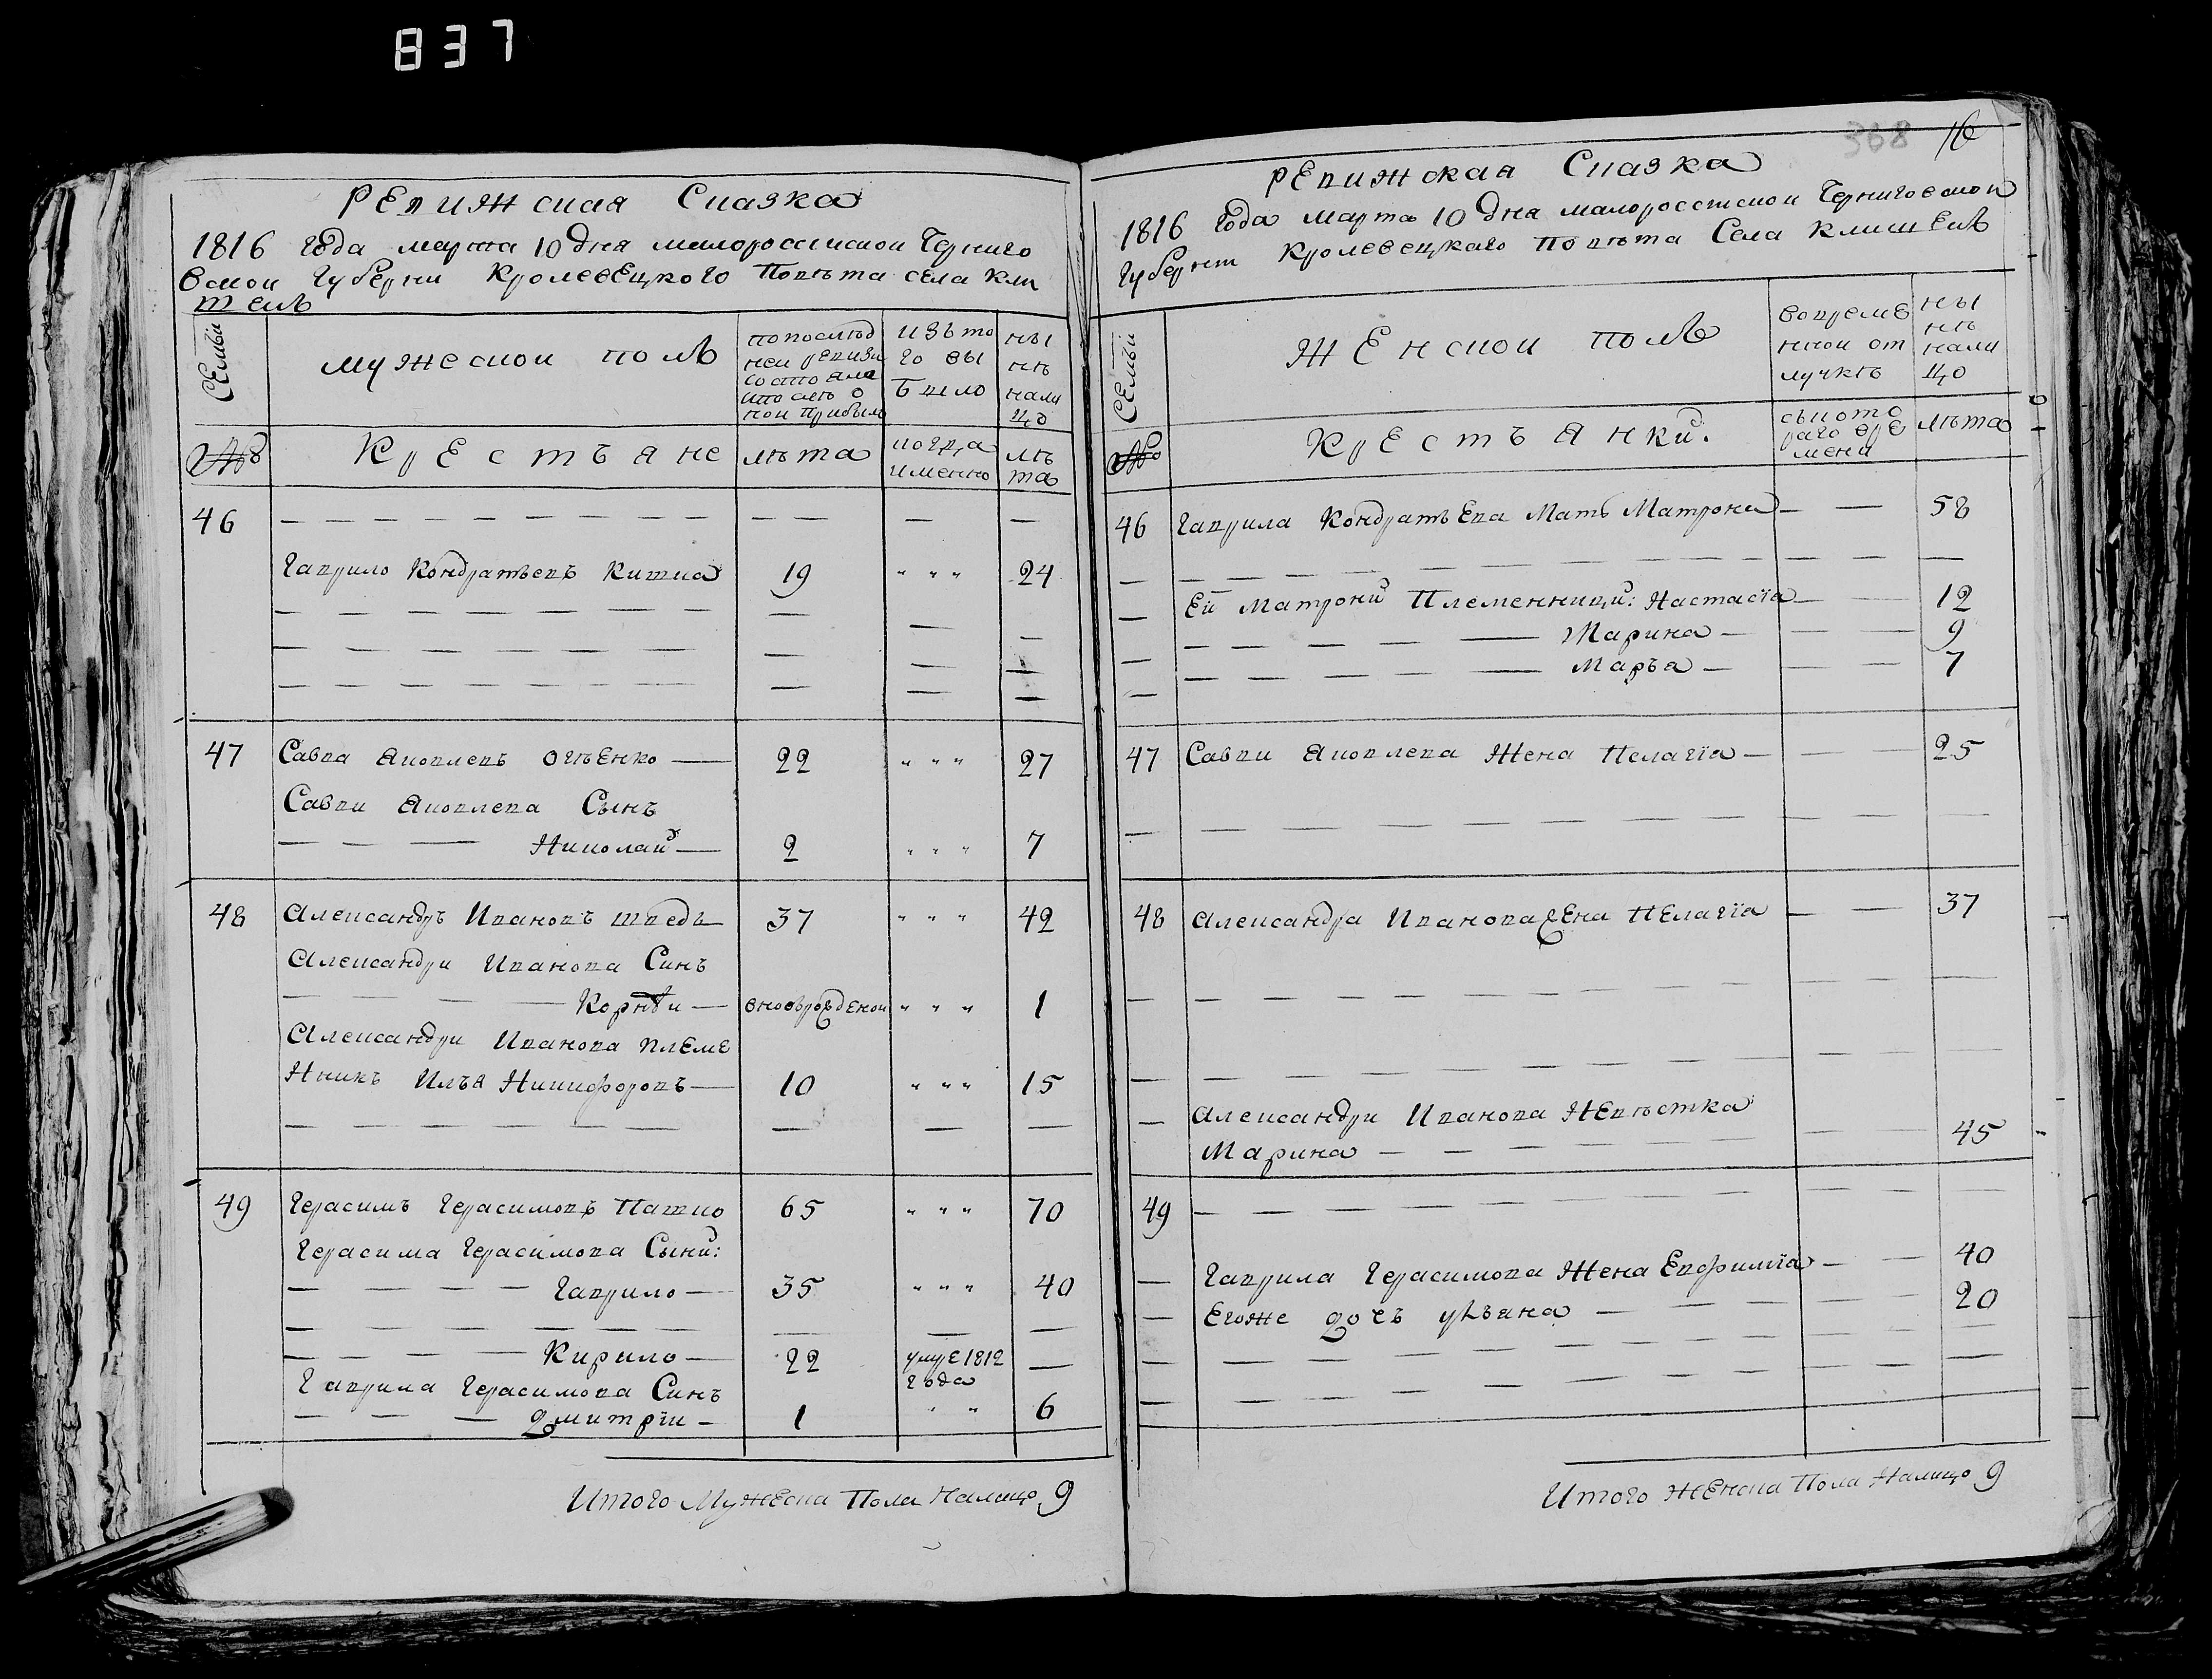 837
Ревижская Сказка
1816 года марта 10 дня малороссиской Черниго
вской Губерни Кролевецкого Повѣта села Кли
шекъ
Семьи
мужеской полъ
попослѣд
ней ревизи
состояло
изъ то
го вы
было
ны
нѣ
нали
цо
№
Крестъяне
лѣта
когда
именно
лѣ
та
46 — — — — — — — — — — — — —
Гаврило Кондратьевъ Китка 19 " " " 24
— — — — — — — — — —
— — — — — — — — — —
— — — — — — — — — —
47 Савва Яковлевъ Огѣенко — 22 " " " 27
Савви Яковлева Сынъ
— — — Николай — 2 " " " 7
48 Александръ Ивановъ шведъ 37 " " " 42
Александри Иванова Синъ
— — — — Корнѣи — вновърожденой " " " 1
Александри Иванова племе
нникъ Илъя Никифоровъ — 10 " " " 15
— — — — — — — — — —
49 Герасимъ Герасимовъ Патко 65 " " " 70
Герасима Герасимова Сыни:
— — — — Гаврило — 35 " " " 40
— — — — — — — — —
— — — — Кирило — 22 умре 1812 —
года
Гаврила Герасимова Синъ
— — — Дмитрїи — 1 " " 6
Итого Мужеска Пола Налицо 9
368 16
Ревижская Сказка
1816 Года Марта 10 дня малоросиской Черниговской
Губернии Кролевецкаго Повѣта Села Клишекъ
Семьи
Женской полъ
вовреме
нной от
лучкѣ
ны
нѣ
нали
цо
№
Крестъянки.
съкото
раго вре
мени
лѣта
46 Гаврила Кондратьева Мать Матрона — — 58
— — — — — — — — — — —
— Ей Матрони Племенници: Настасїа — — 12
— — — — — — Марина — — — 9
— — — — — — Маръа — — — 7
—
47 Савви Яковлева Жена Пелагїа — — — 25
— — — — — — — — — — —
48 Александра Иванова Жена Пелагїа — — 37
— — — — — — — — — — —
— — — — — — — — — — —
— Александри Иванова Невѣстка
Марина — — — — — — 45
49 — — — — — — — — — —
— Гаврила Герасимова Жена Евфимїа — — 40
— Егоже дочъ Улъяна — — — — 20
— — — — — — — — — —
— — — — — — — — — —
Итого Женска Пола Налицо 9